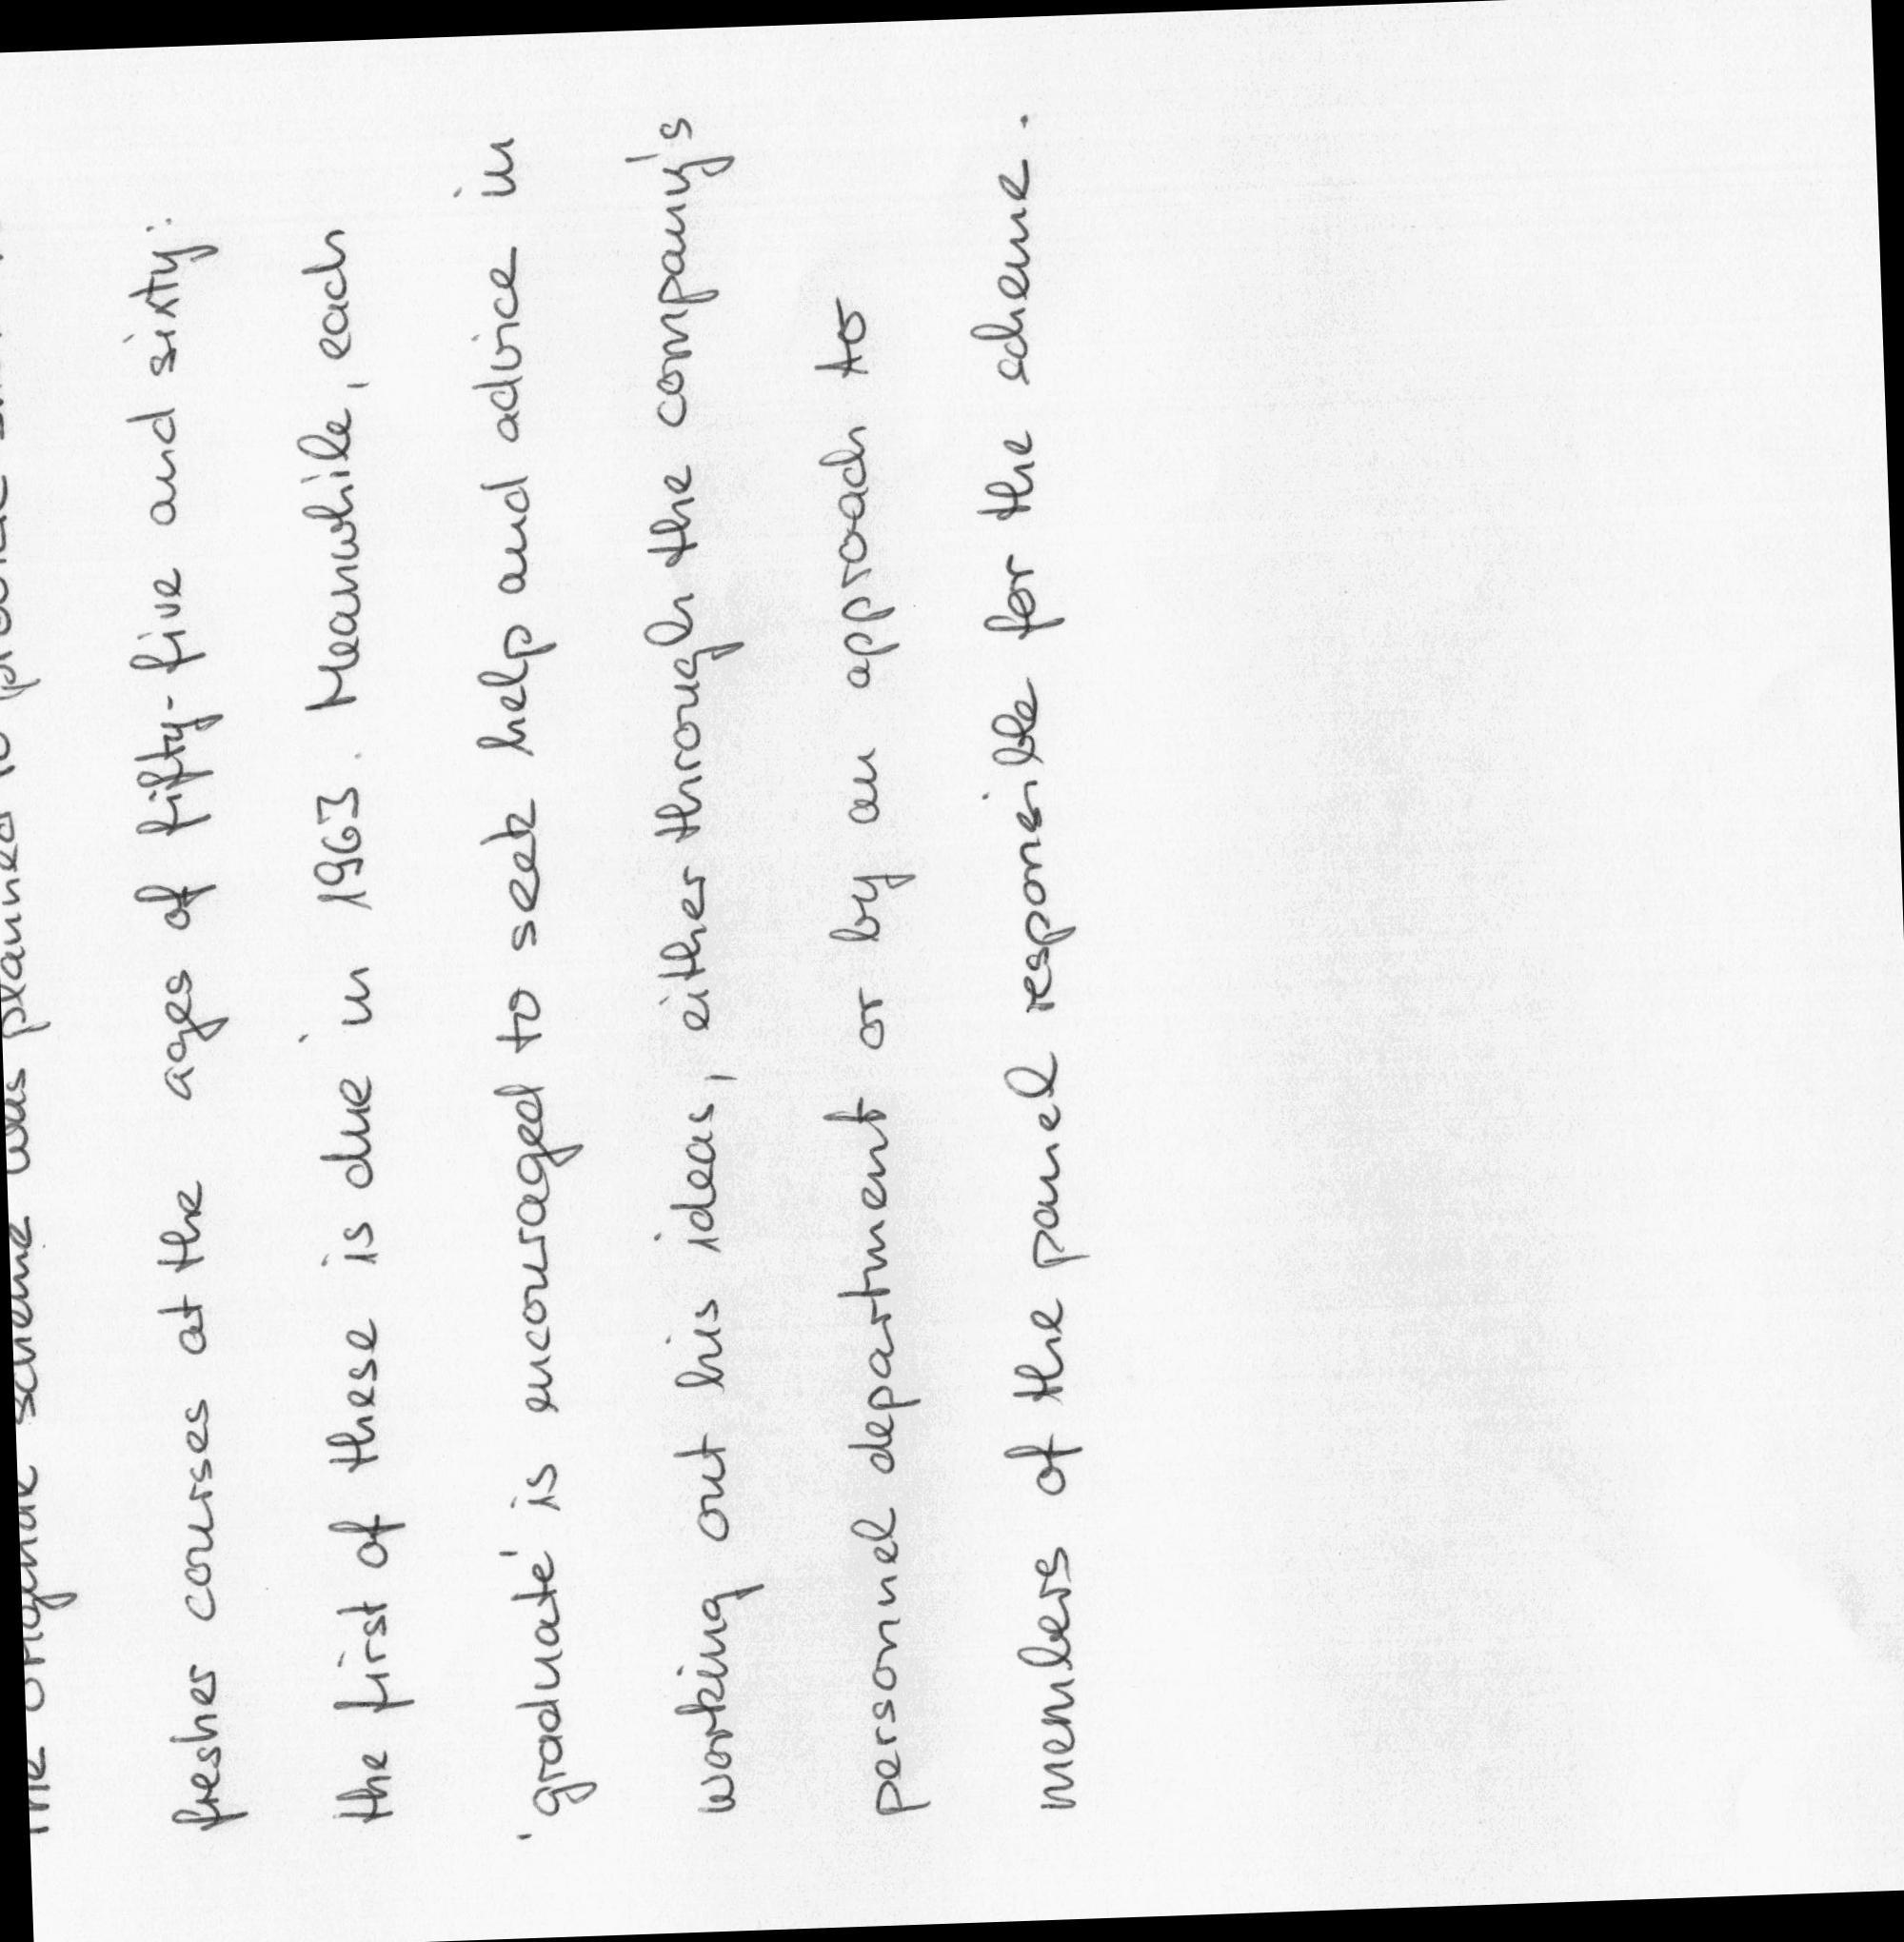 The original scheme was planned to provide
fresher courses at the ages of fifty-five and sixty:
the first of these is due in 1963. Meanwhile, each
'graduate' is encouraged to seek help and advice in
working out his ideas, either through the company's
personnel department or by an approach to
members of the panel responsible for the scheme.